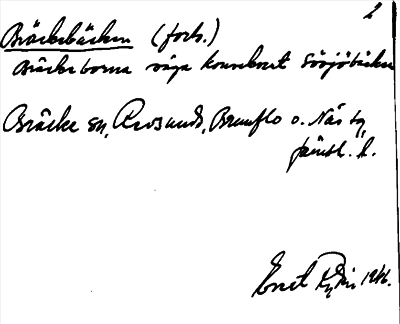 2
Bräckebäcken (forts.)
Bräckeborna säga konsekvent Sörjöbäcken
Bräcke sn, Revsunds, Brunflo o. Näs tg,
Jämtl. l.
1946.